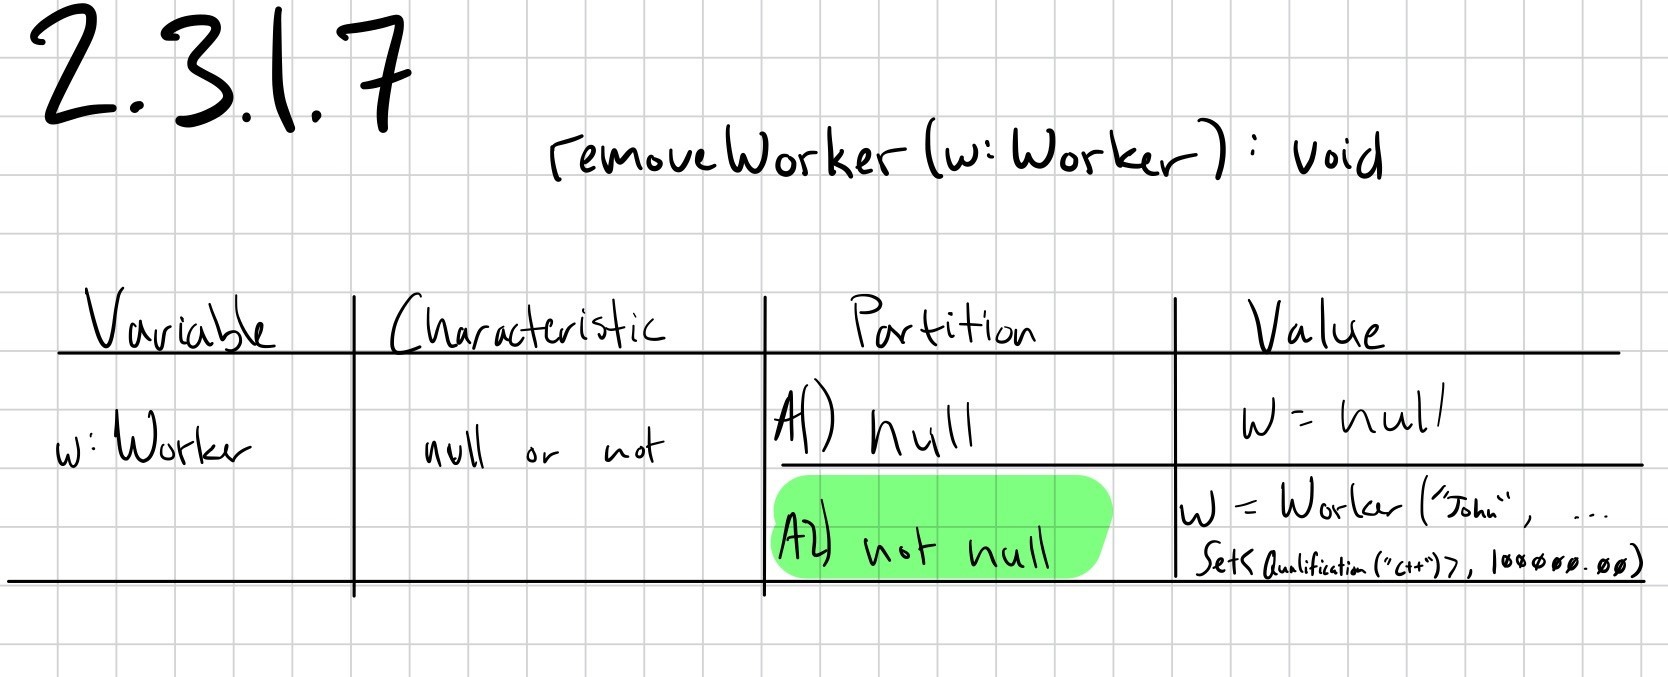 2.3.1.7
removeWorker(w: Worker): void
Variable Characteristic Partition Value
w: Worker null or not A1) null w = null
A2) not null w = Worker("John", ...
Set<Qualification("C++")>, 100000.00)